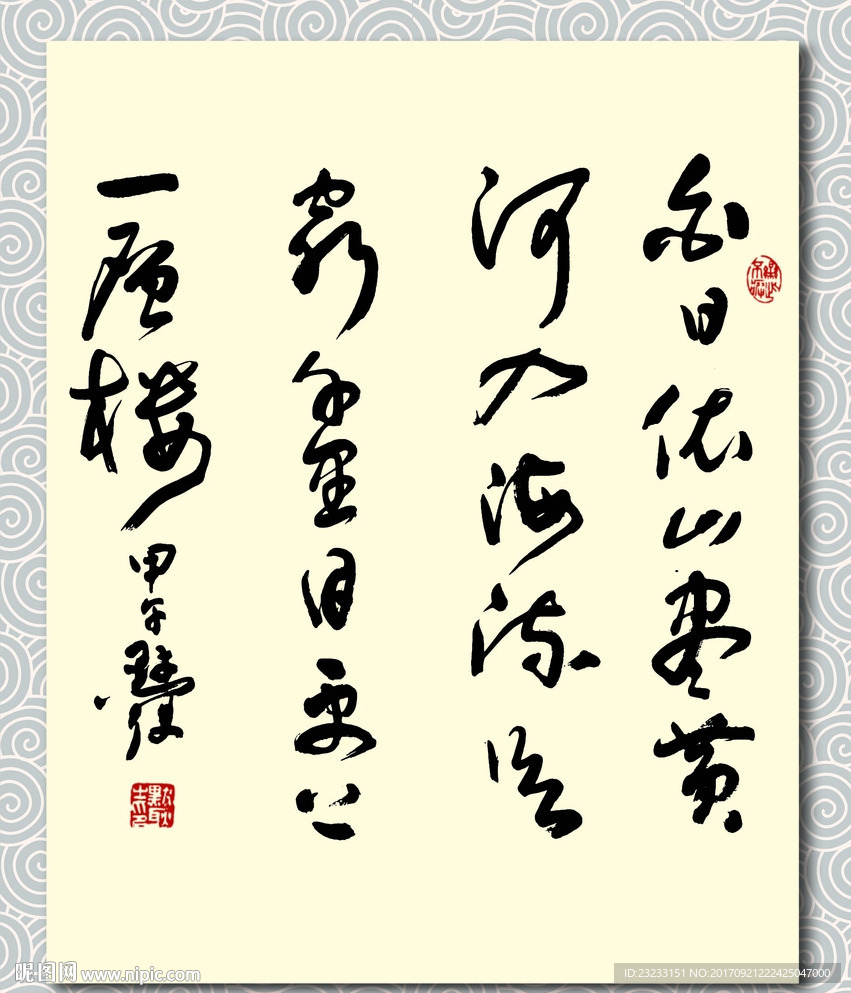 白日依山盡黄
河入海流欲
窮千里目更上
一層楼
甲午
昵图网 www.nipic.com
ID:23233151 NO:20170921222425047000